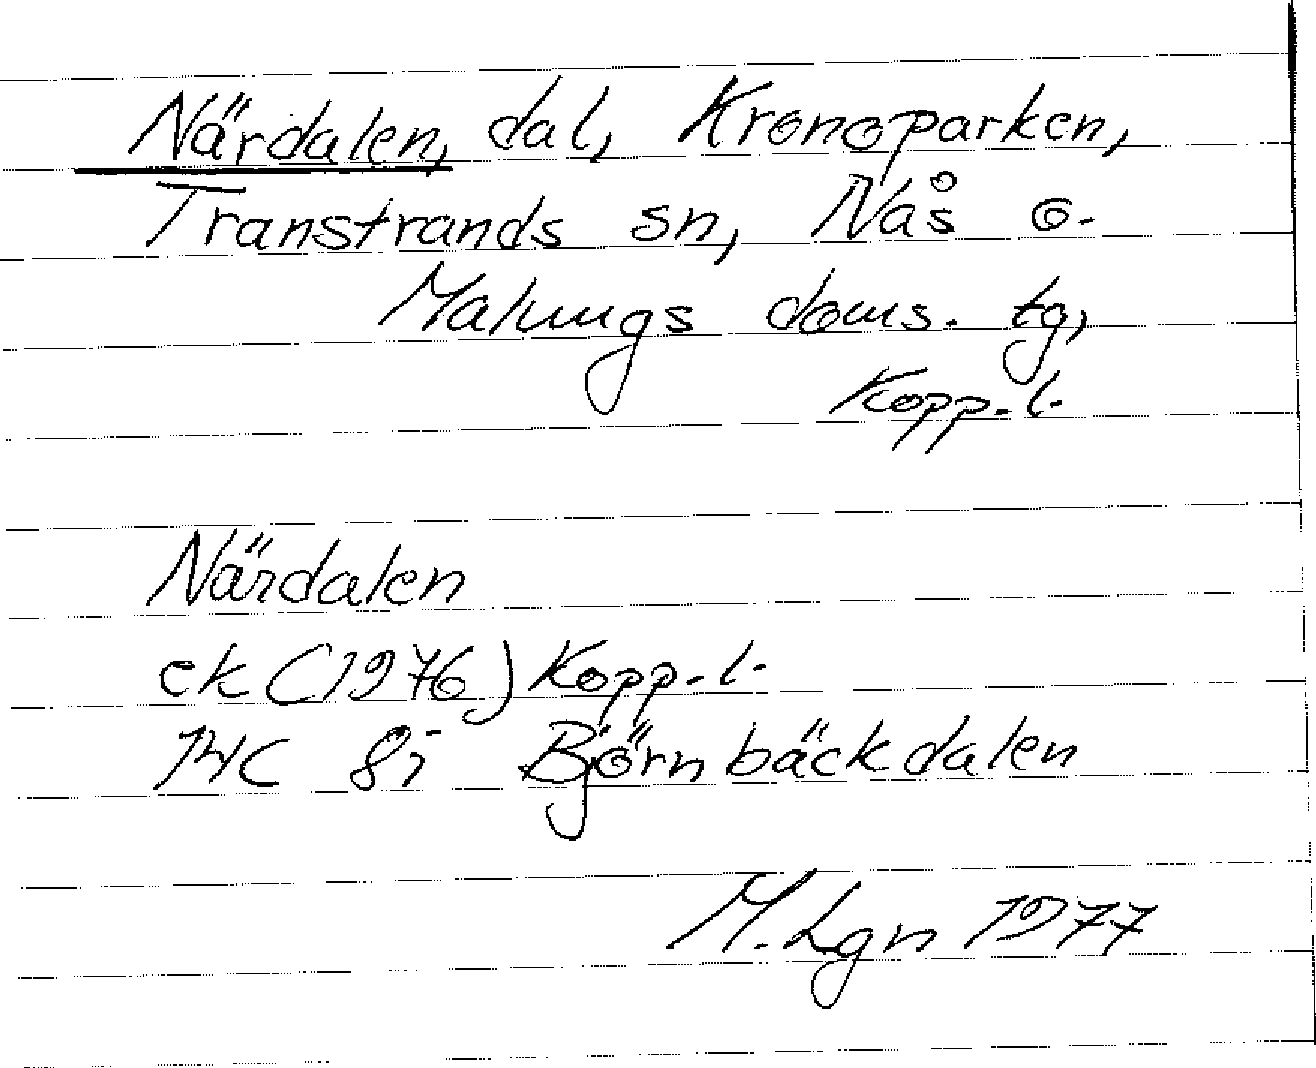 Närdalen, dal, Kronoparken,
Transtrands sn, Nås o.
Malungs doms. tg,
Kopp. l.
Närdalen
ek (1976) Kopp. l.
14C 8i Björnbäckdalen
M. Lgn 1977